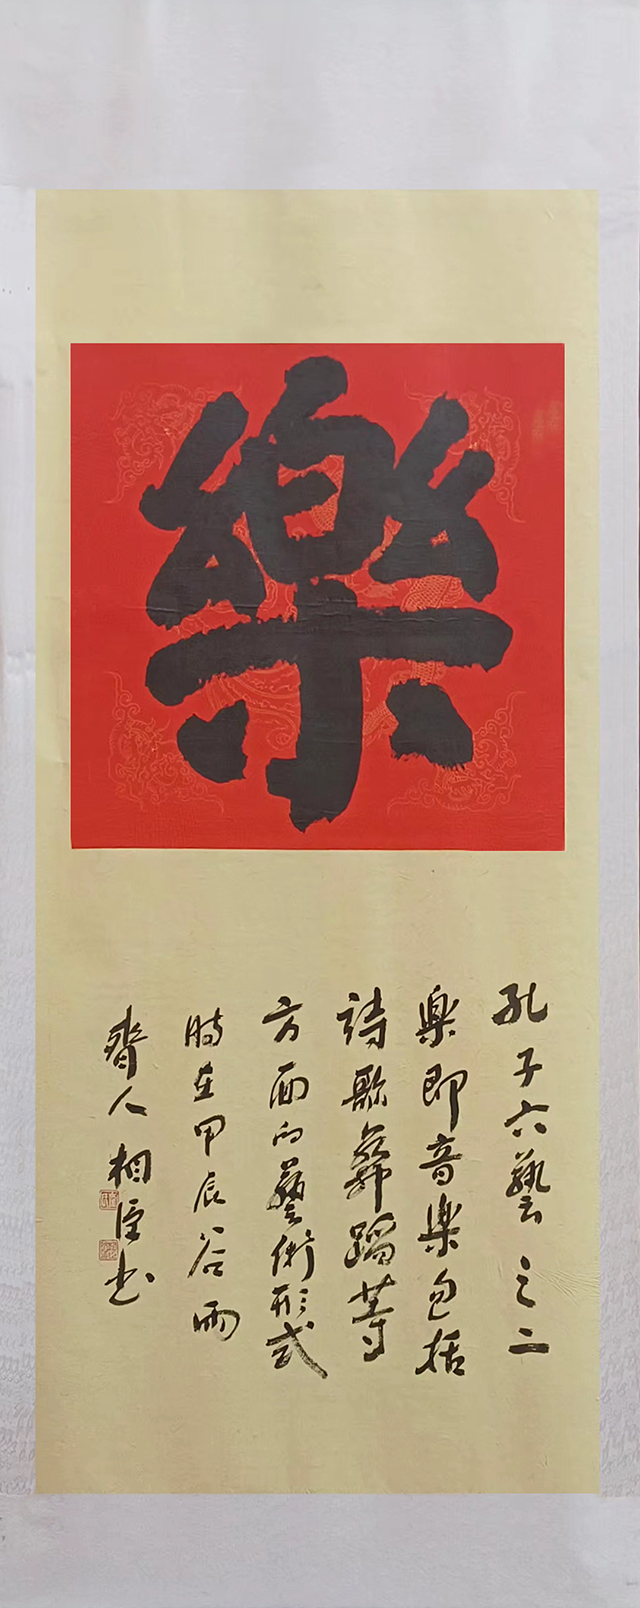 樂
孔子六藝之二
樂即音樂包括
詩歌舞蹈等
方面的藝術形式
時在甲辰谷雨
齊人相臣书